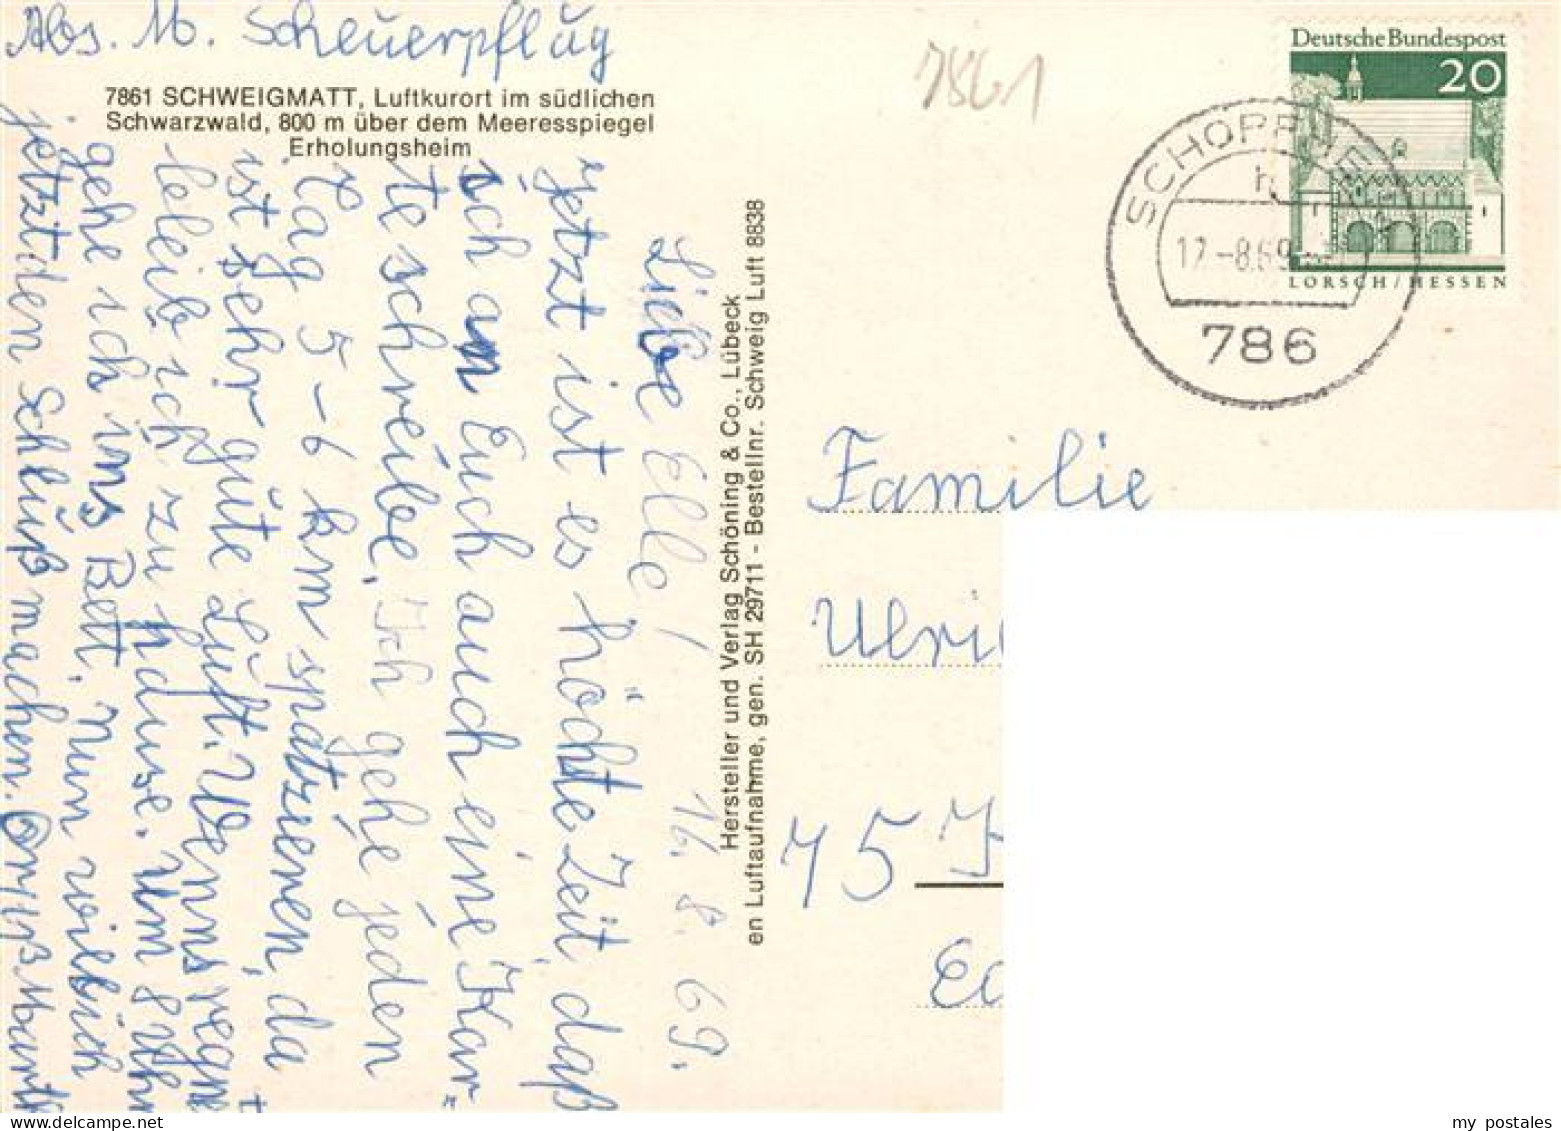 Abs. M. Scheuerpflug
7861 SCHWEIGMATT, Luftkurort im südlichen
Schwarzwald, 800 m über dem Meeresspiegel
Erholungsheim
Liebe Elle! 16. 8. 69.
Jetzt ist es höchste Zeit, daß
ich an Euch auch eine Kar"
te schreibe. Ich gehe jeden
Tag 5-6 km spatzieren, da
ist sehr gute Luft. Wenns regnet
bleib ich zu hause. Um 8 Uhr
gehe ich ins Bett. Nun will ich
jetzt den Schluß machen. Gruß
Hersteller und Verlag Schöning & Co., Lübeck
en Luftaufnahme, gen. SH 29711 - Bestellnr. Schweig Luft 8838
7861
Deutsche Bundespost
20
LORSCH/HESSEN
SCHOPFHEIM
h
-8.69
786
Familie
Ulri
75 K
my postales